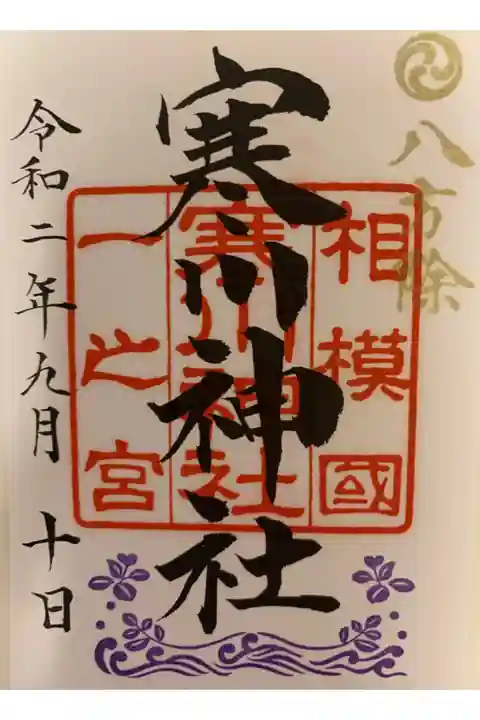 八方除
寒川神社
相模國
寒川神社
一之宮
令和二年九月 十日